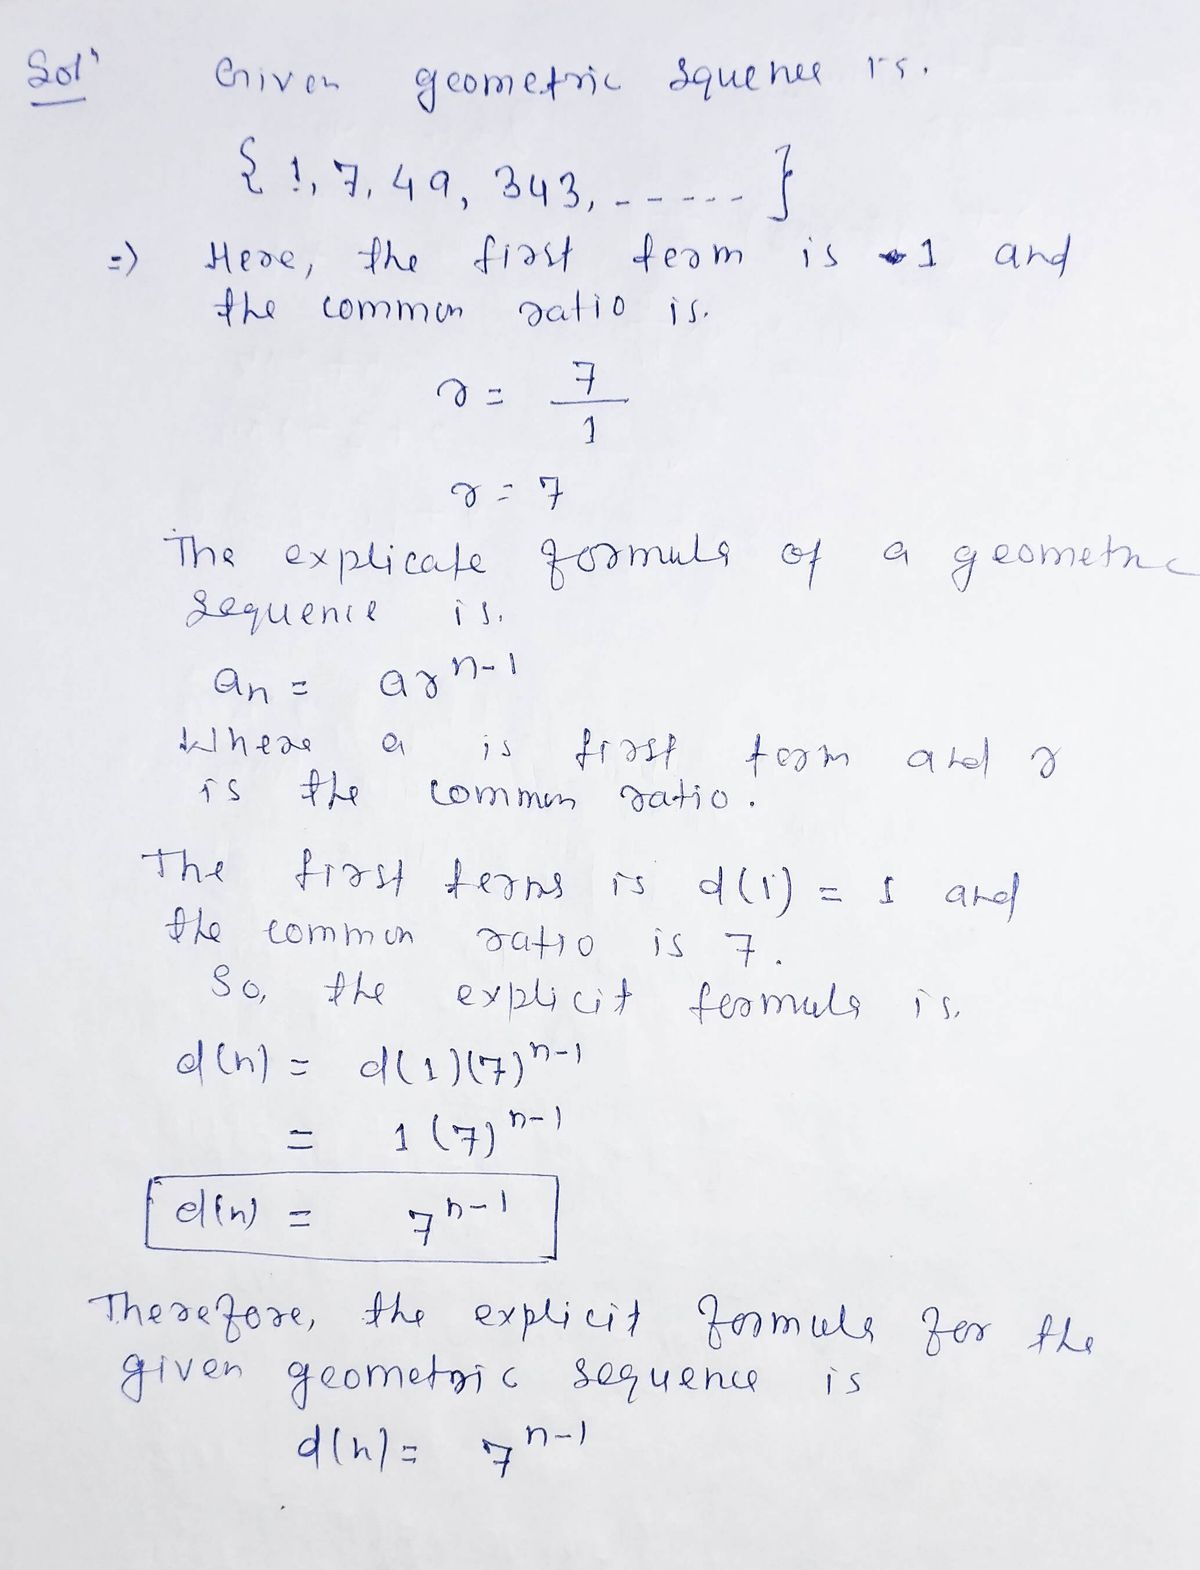 Solⁿ Given geometric squence is.
{ 1, 7, 49, 343, ------ }
=> Here, the first term is 1 and
the common ratio is.
r = 7/1
r = 7
The explicate formula of a geometric
sequence is.
an = ar^n-1
Where a is first term and r
is the common ratio.
The first terms is d(1) = 1 and
the common ratio is 7.
So, the explicit formula is.
d(n) = d(1)(7)^n-1
= 1 (7)^n-1
d(n) = 7^n-1
Therefore, the explicit formula for the
given geometric sequence is
d(n) = 7^n-1